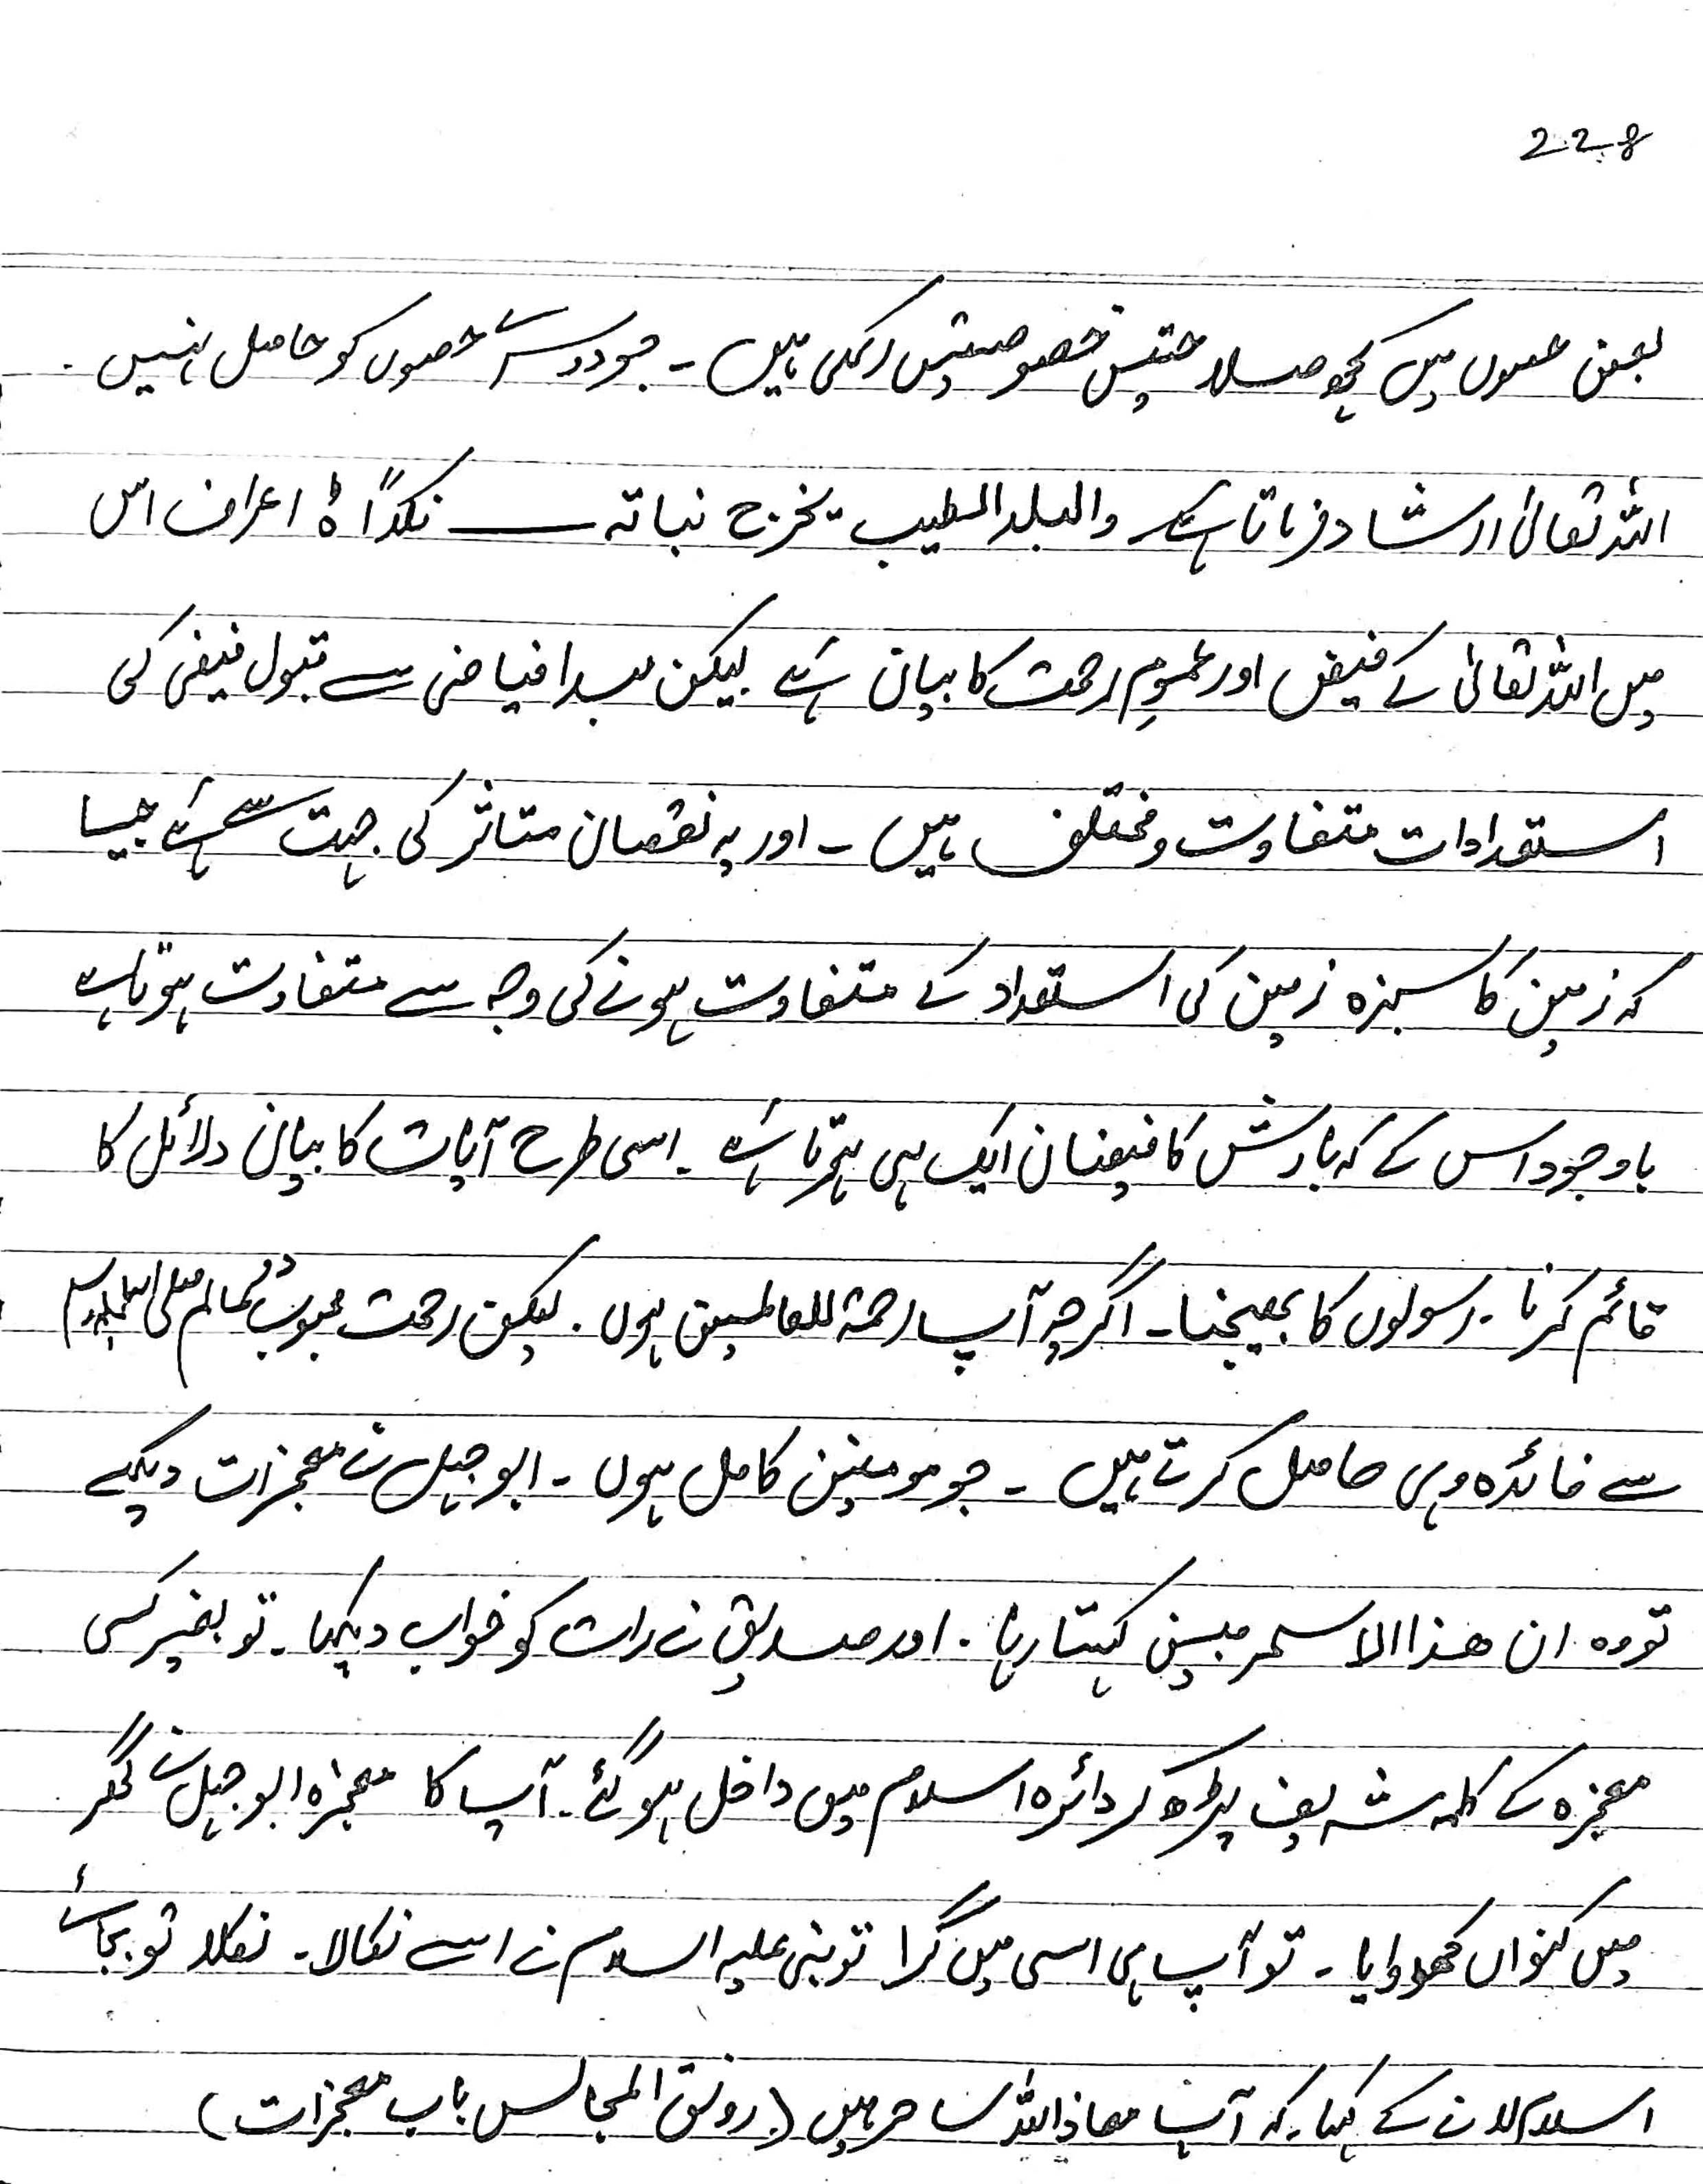 228
بعض حصوں میں کچھ صلاحیتیں خصوصیتیں رکھی ہیں ۔ جو دوسرے حصوں کو حاصل نہیں ۔
اللہ تعالیٰ ارشاد فرماتا ہے والبلد الطیب یخرج نباتہ ــــ نکداً ۸ اعراف اس
میں اللہ تعالیٰ کے فیض اور عموم رحمت کا بیان ہے لیکن مبدا فیاضی سے قبول فیض کی
استعدادات متفاوت و مختلف ہیں ۔ اور یہ نقصان متاثر کی جہت سے ہے جیسا
کہ زمین کا سبزہ زمین کی استعداد کے متفاوت ہونے کی وجہ سے متفاوت ہوتا ہے
باوجود اس کے کہ بارش کا فیضان ایک ہی ہوتا ہے ۔ اسی طرح آیات کا بیان دلائل کا
قائم کرنا ۔ رسولوں کا بھیجنا ۔ اگرچہ آپ رحمۃ للعالمین ہوں ۔ لیکن رحمت محبوب دو عالم صلی اللہ علیہ وسلم
سے فائدہ وہی حاصل کرتے ہیں ۔ جو مومنین کامل ہوں ۔ ابوجہل نے معجزات دیکھے
تو وہ ان ھذا الا سحر مبین کہتا رہا ۔ اور صدیق نے رات کو خواب دیکھا ۔ تو بغیر کسی
معجزہ کے کلمہ شریف پڑھ کر دائرہ اسلام میں داخل ہو گئے ۔ آپ کا معجزہ ابوجہل نے گھر
میں کنواں کھودوایا ۔ تو آپ ہی اسی میں گرا تو نبی علیہ السلام نے اسے نکالا ۔ نکلا تو بجائے
اسلام لانے کے کہا کہ آپ معاذ اللہ ساحر ہیں (رونق المجالس باب معجزات)